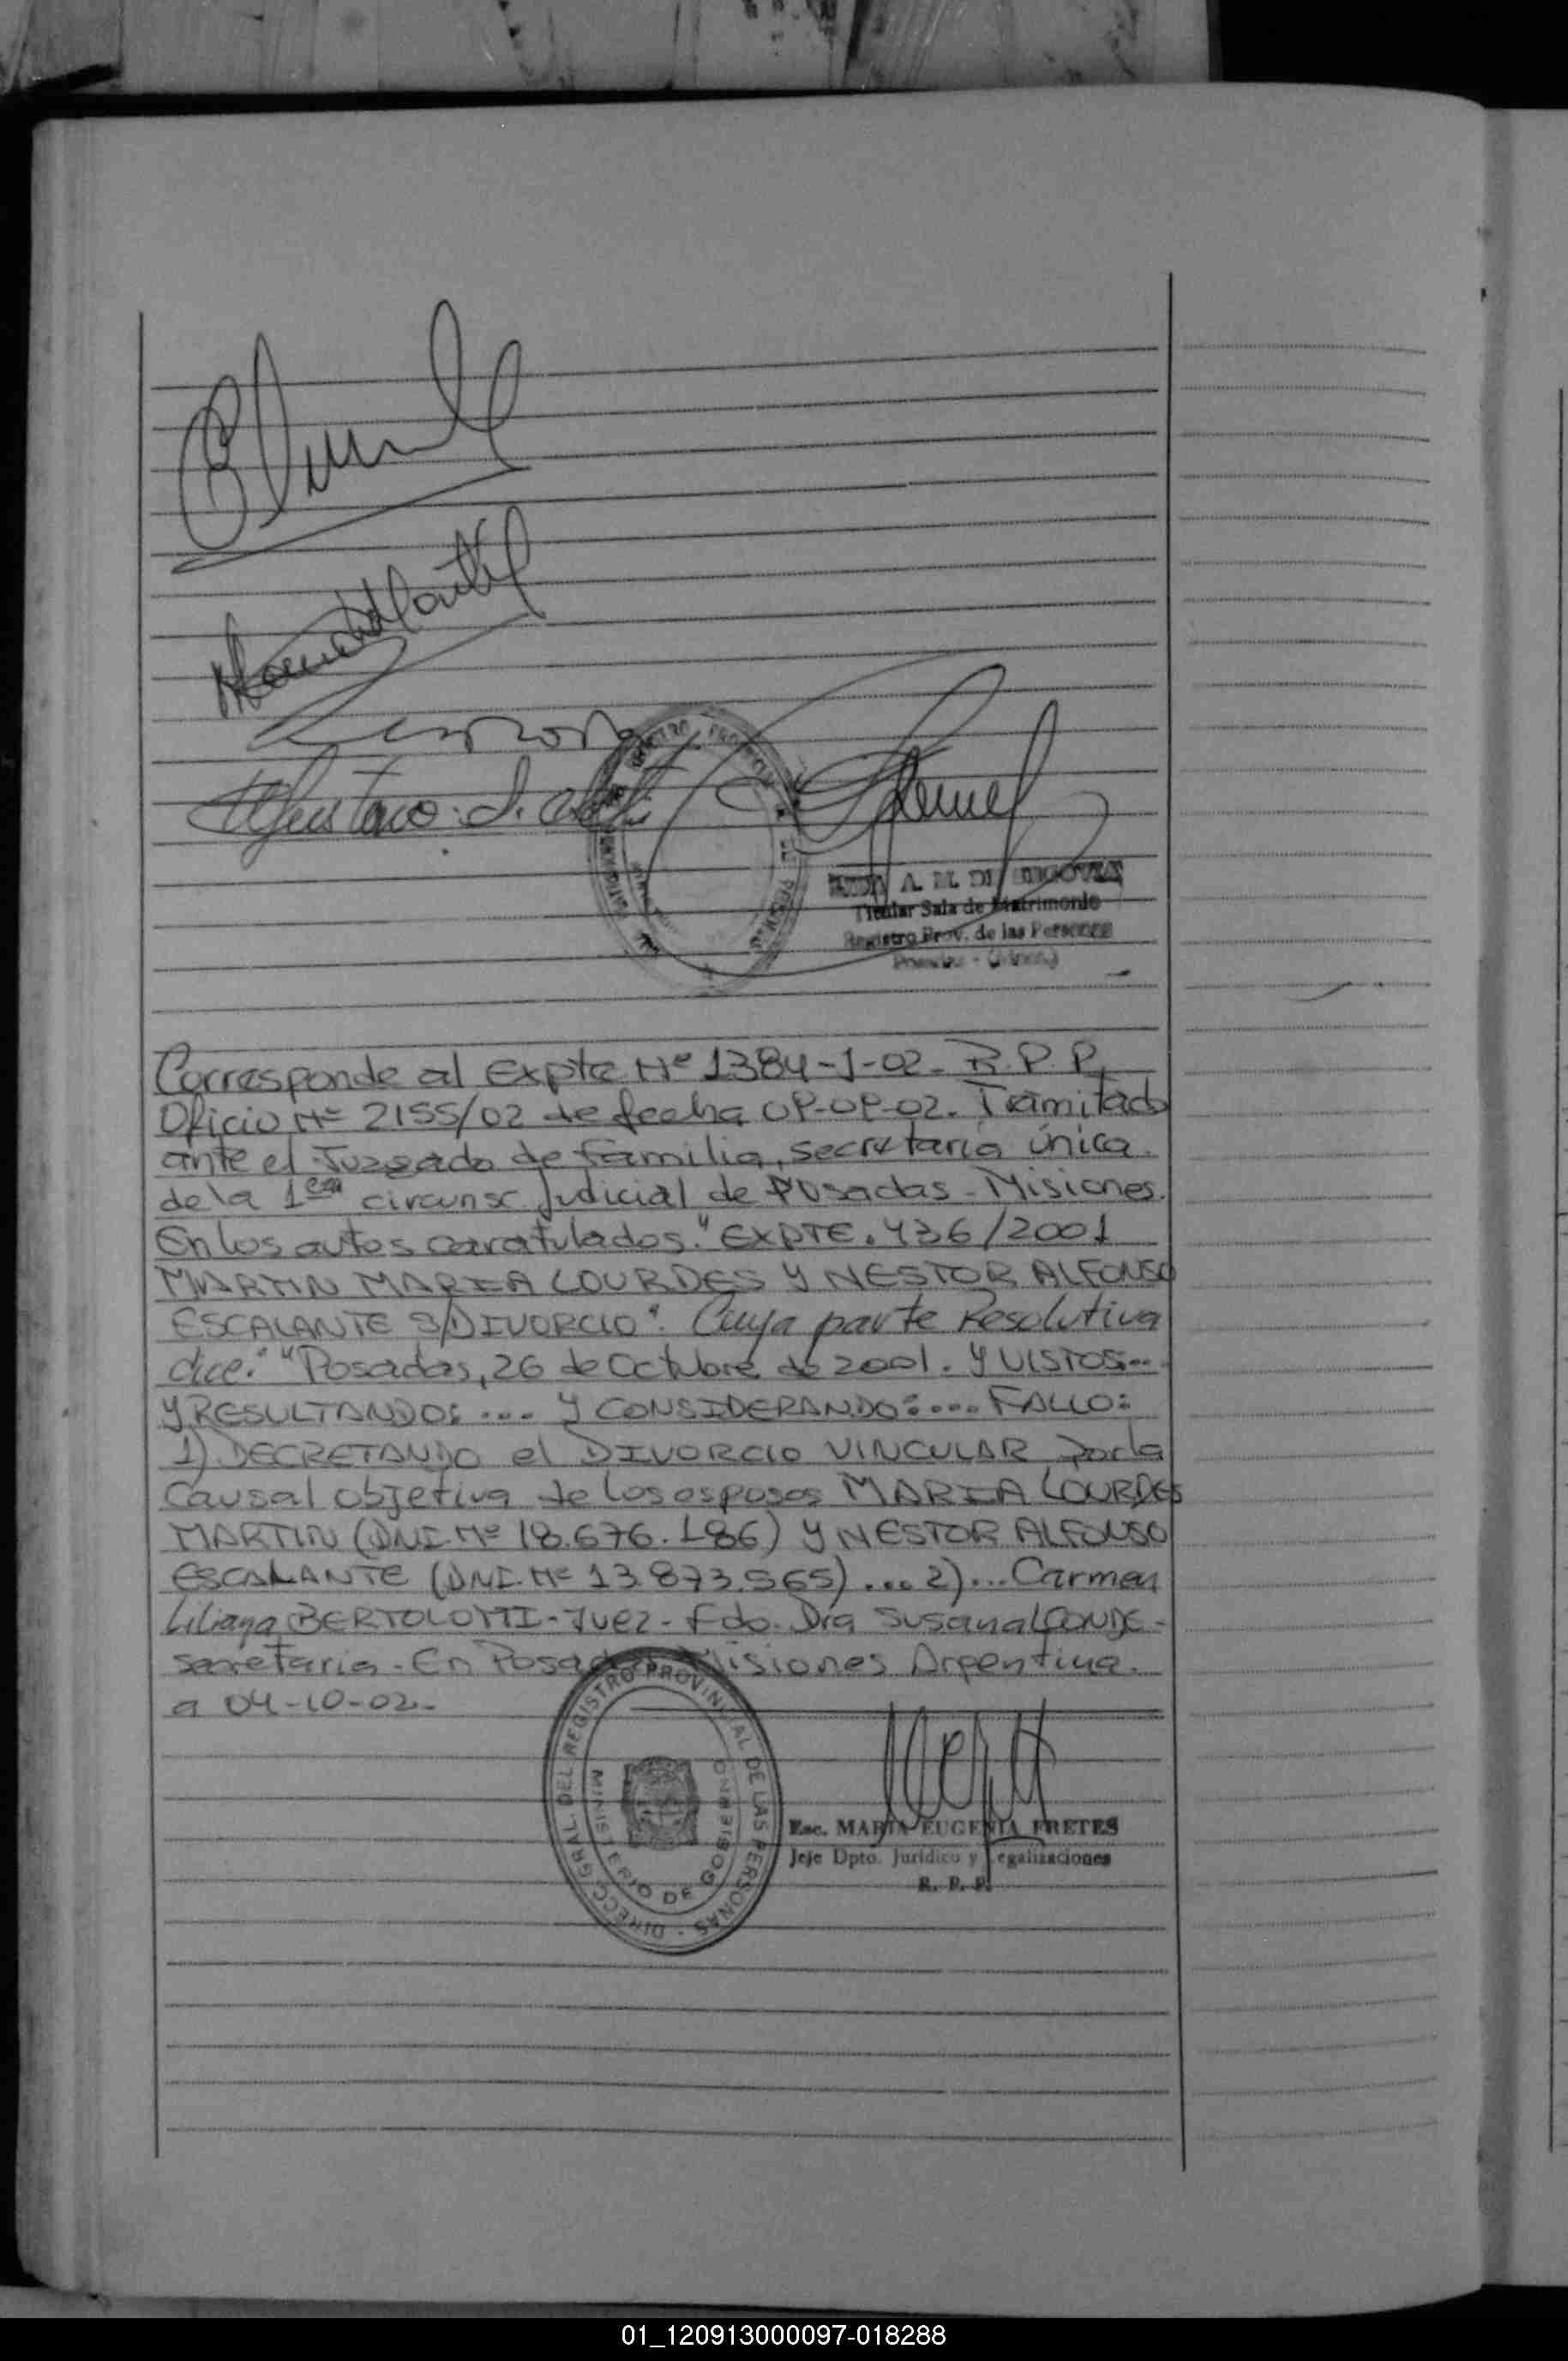 A. M. DE SEGOVIA
Titular Sala de Matrimonio
Registro Prov. de las Personas
Posadas - (Mnes.)
Corresponde al Expte Nº 1384-1-02- R.P.P.
Oficio Nº 2155/02 de fecha 09-09-02. Tramitado
ante el Juzgado de familia, secretaria única.
de la 1era circunsc. Judicial de Posadas - Misiones.
En los autos caratulados. "EXPTE. 436/2001
MARTIN MARIA LOURDES Y NESTOR ALFONSO
ESCALANTE S/DIVORCIO". Cuya parte Resolutiva
dice: "Posadas, 26 de Octubre de 2001. Y VISTOS:...
Y RESULTANDO: ... Y CONSIDERANDO: ... FALLO:
1) DECRETANDO el DIVORCIO VINCULAR por la
Causal objetiva de los esposos MARIA LOURDES
MARTIN (DNI. Nº 18.676.186) Y NESTOR ALFONSO
ESCALANTE (DNI. Nº 13.873.565) ... 2) ... Carmen
Liliana BERTOLOTTI - Juez - Fdo. Dra Susana CONDE -
secretaria - En Posadas Misiones Argentina.
a 04-10-02.-
DIRECC. GRAL. DEL REGISTRO PROVINCIAL DE LAS PERSONAS
MINISTERIO DE GOBIERNO
Esc. MARIA EUGENIA FRETES
Jefe Dpto. Jurídico y Legalizaciones
R. P. P.
01_120913000097-018288